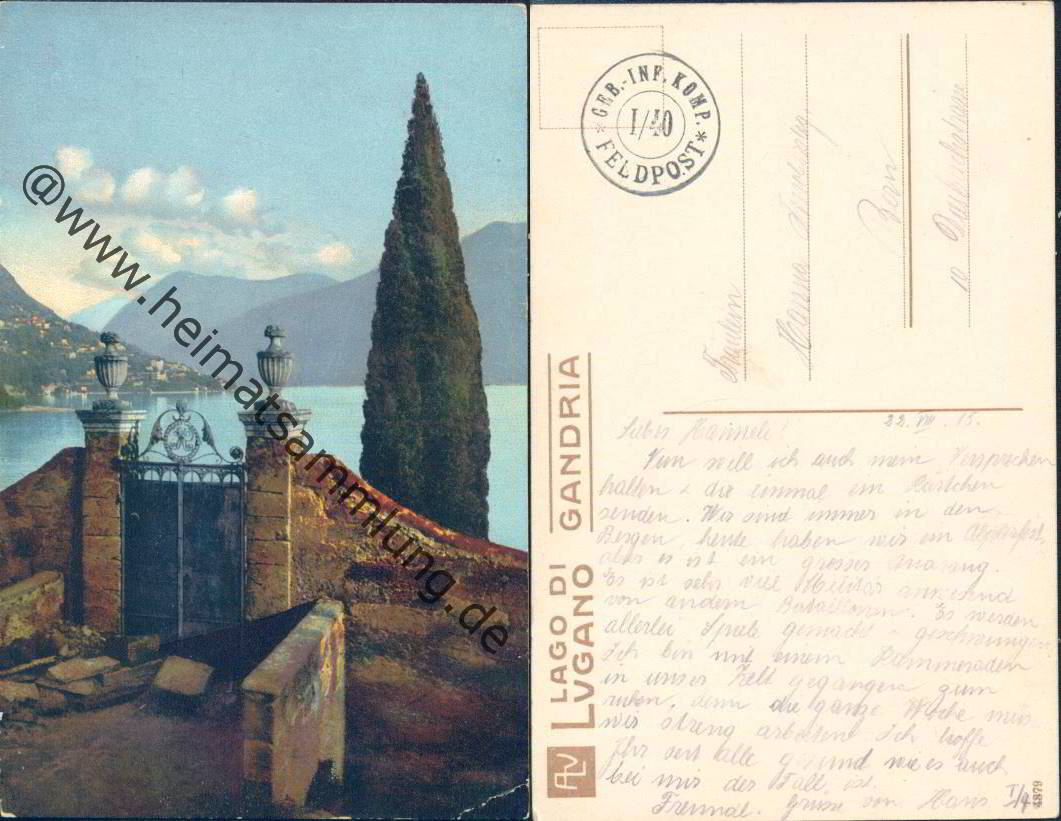 @www.heimatsammlung.de
GEB.-INF.KOMP.
I/40
* FELDPOST *
Fräulein
Hanna
Bern
10
LAGO DI
LVGANO
GANDRIA
22. VIII. 15.
Liebes Hanneli!
Nun will ich auch mein Versprechen
halten & dir einmal ein Kärtchen
senden. Wir sind immer in den
Bergen, heute haben wir ein
aber es ist ein grosser Andrang.
Es ist sehr viel Militär anwesend
von andern Bataillonen. Es werden
allerlei Spiele gemacht & geschwungen.
Ich bin mit einem Kammeraden
in unser Zelt gegangen zum
ruhen, denn die ganze Woche müs
wir streng arbeiten. Ich hoffe
Ihr seit alle gesund wie es auch
bei mir der Fall ist.
Freundl. Grüsse von Hans I/4
ALV
4879